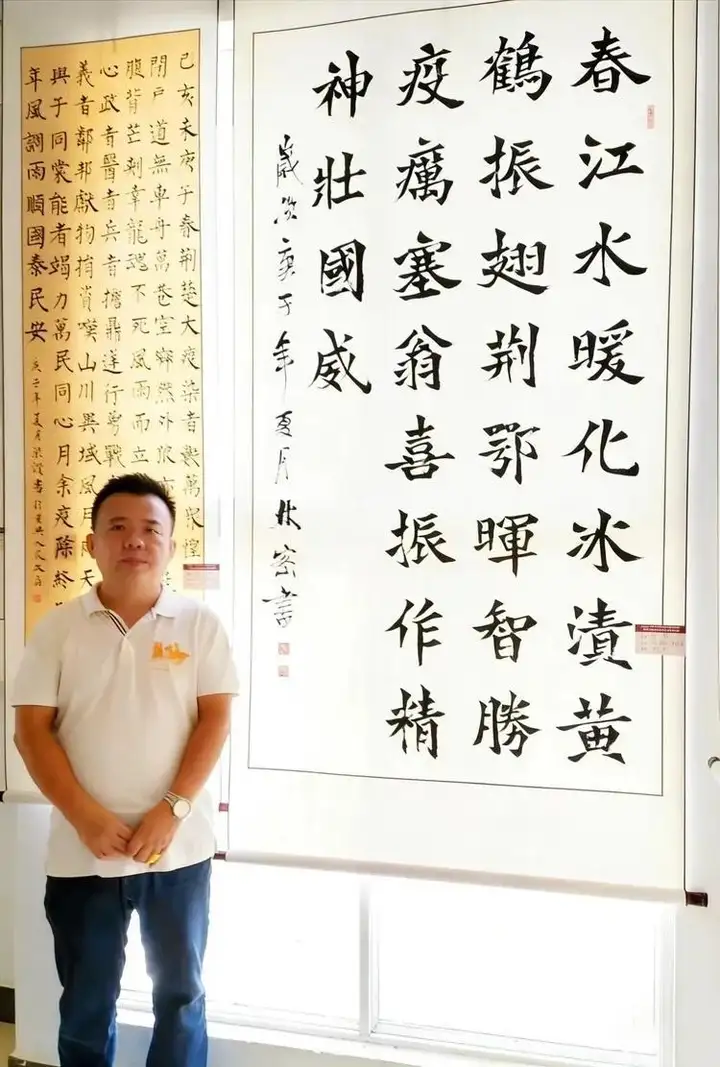 春江水暖化冰漬黄
鶴振翅荆鄂暉智勝
疫癘塞翁喜振作精
神壯國威
歲次庚子年夏月林密書
己亥末庚子春荆楚大疫染者數萬衆惶
閉戶道無車舟萬巷空寂然外狼
腹背芒刺幸龍魂不死風雨而立
心政者醫者兵者擔鼎逆行勇戰
義者鄰邦獻物捐資嘆山川異域風月同天
與子同裳能者竭力萬民同心月余疫除終
年風調雨順國泰民安
庚子年夏月梁